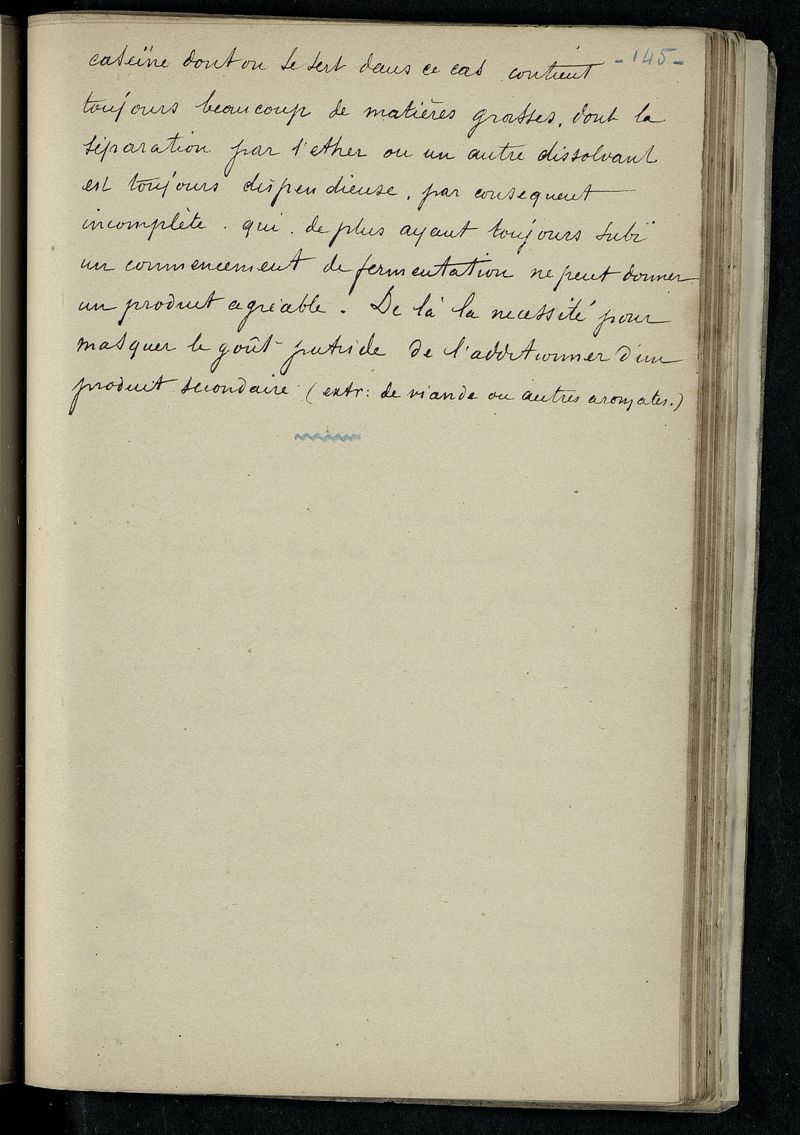 -145-
caseïne dont on se sert dans ce cas contient
toujours beaucoup de matières grasses, dont la
séparation par l'ether ou un autre dissolvant
est toujours dispendieuse, par consequent
incomplète. qui. de plus ayant toujours subi
un commencement de fermentation ne peut donner
un produit agréable. De là la necessité pour
masquer le goût putride de l'additionner d'un
produit secondaire (extr: de viande ou autres aromates.)